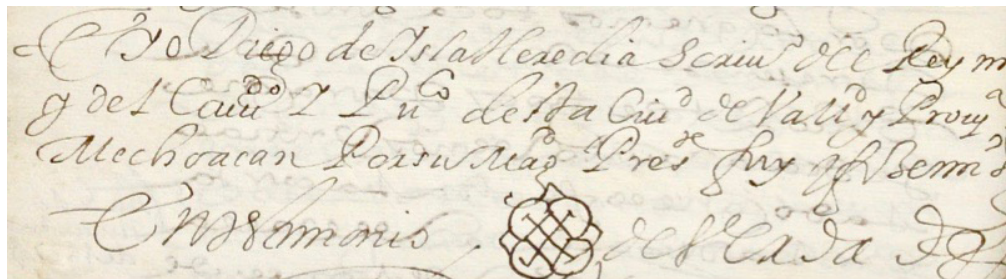 E Yo Diego de Isla Heredia Scriuo de el Rey n
y del Cauildo Y Puco desta Ciud de Valld y Prouia
Mechoacan Por su Magd Prese fuy
En testimonio de Verdad